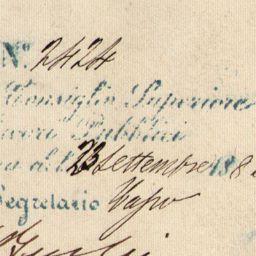 N° 2424
Consiglio Superiore
Lavori Pubblici
23 Settembre 188
Segretario